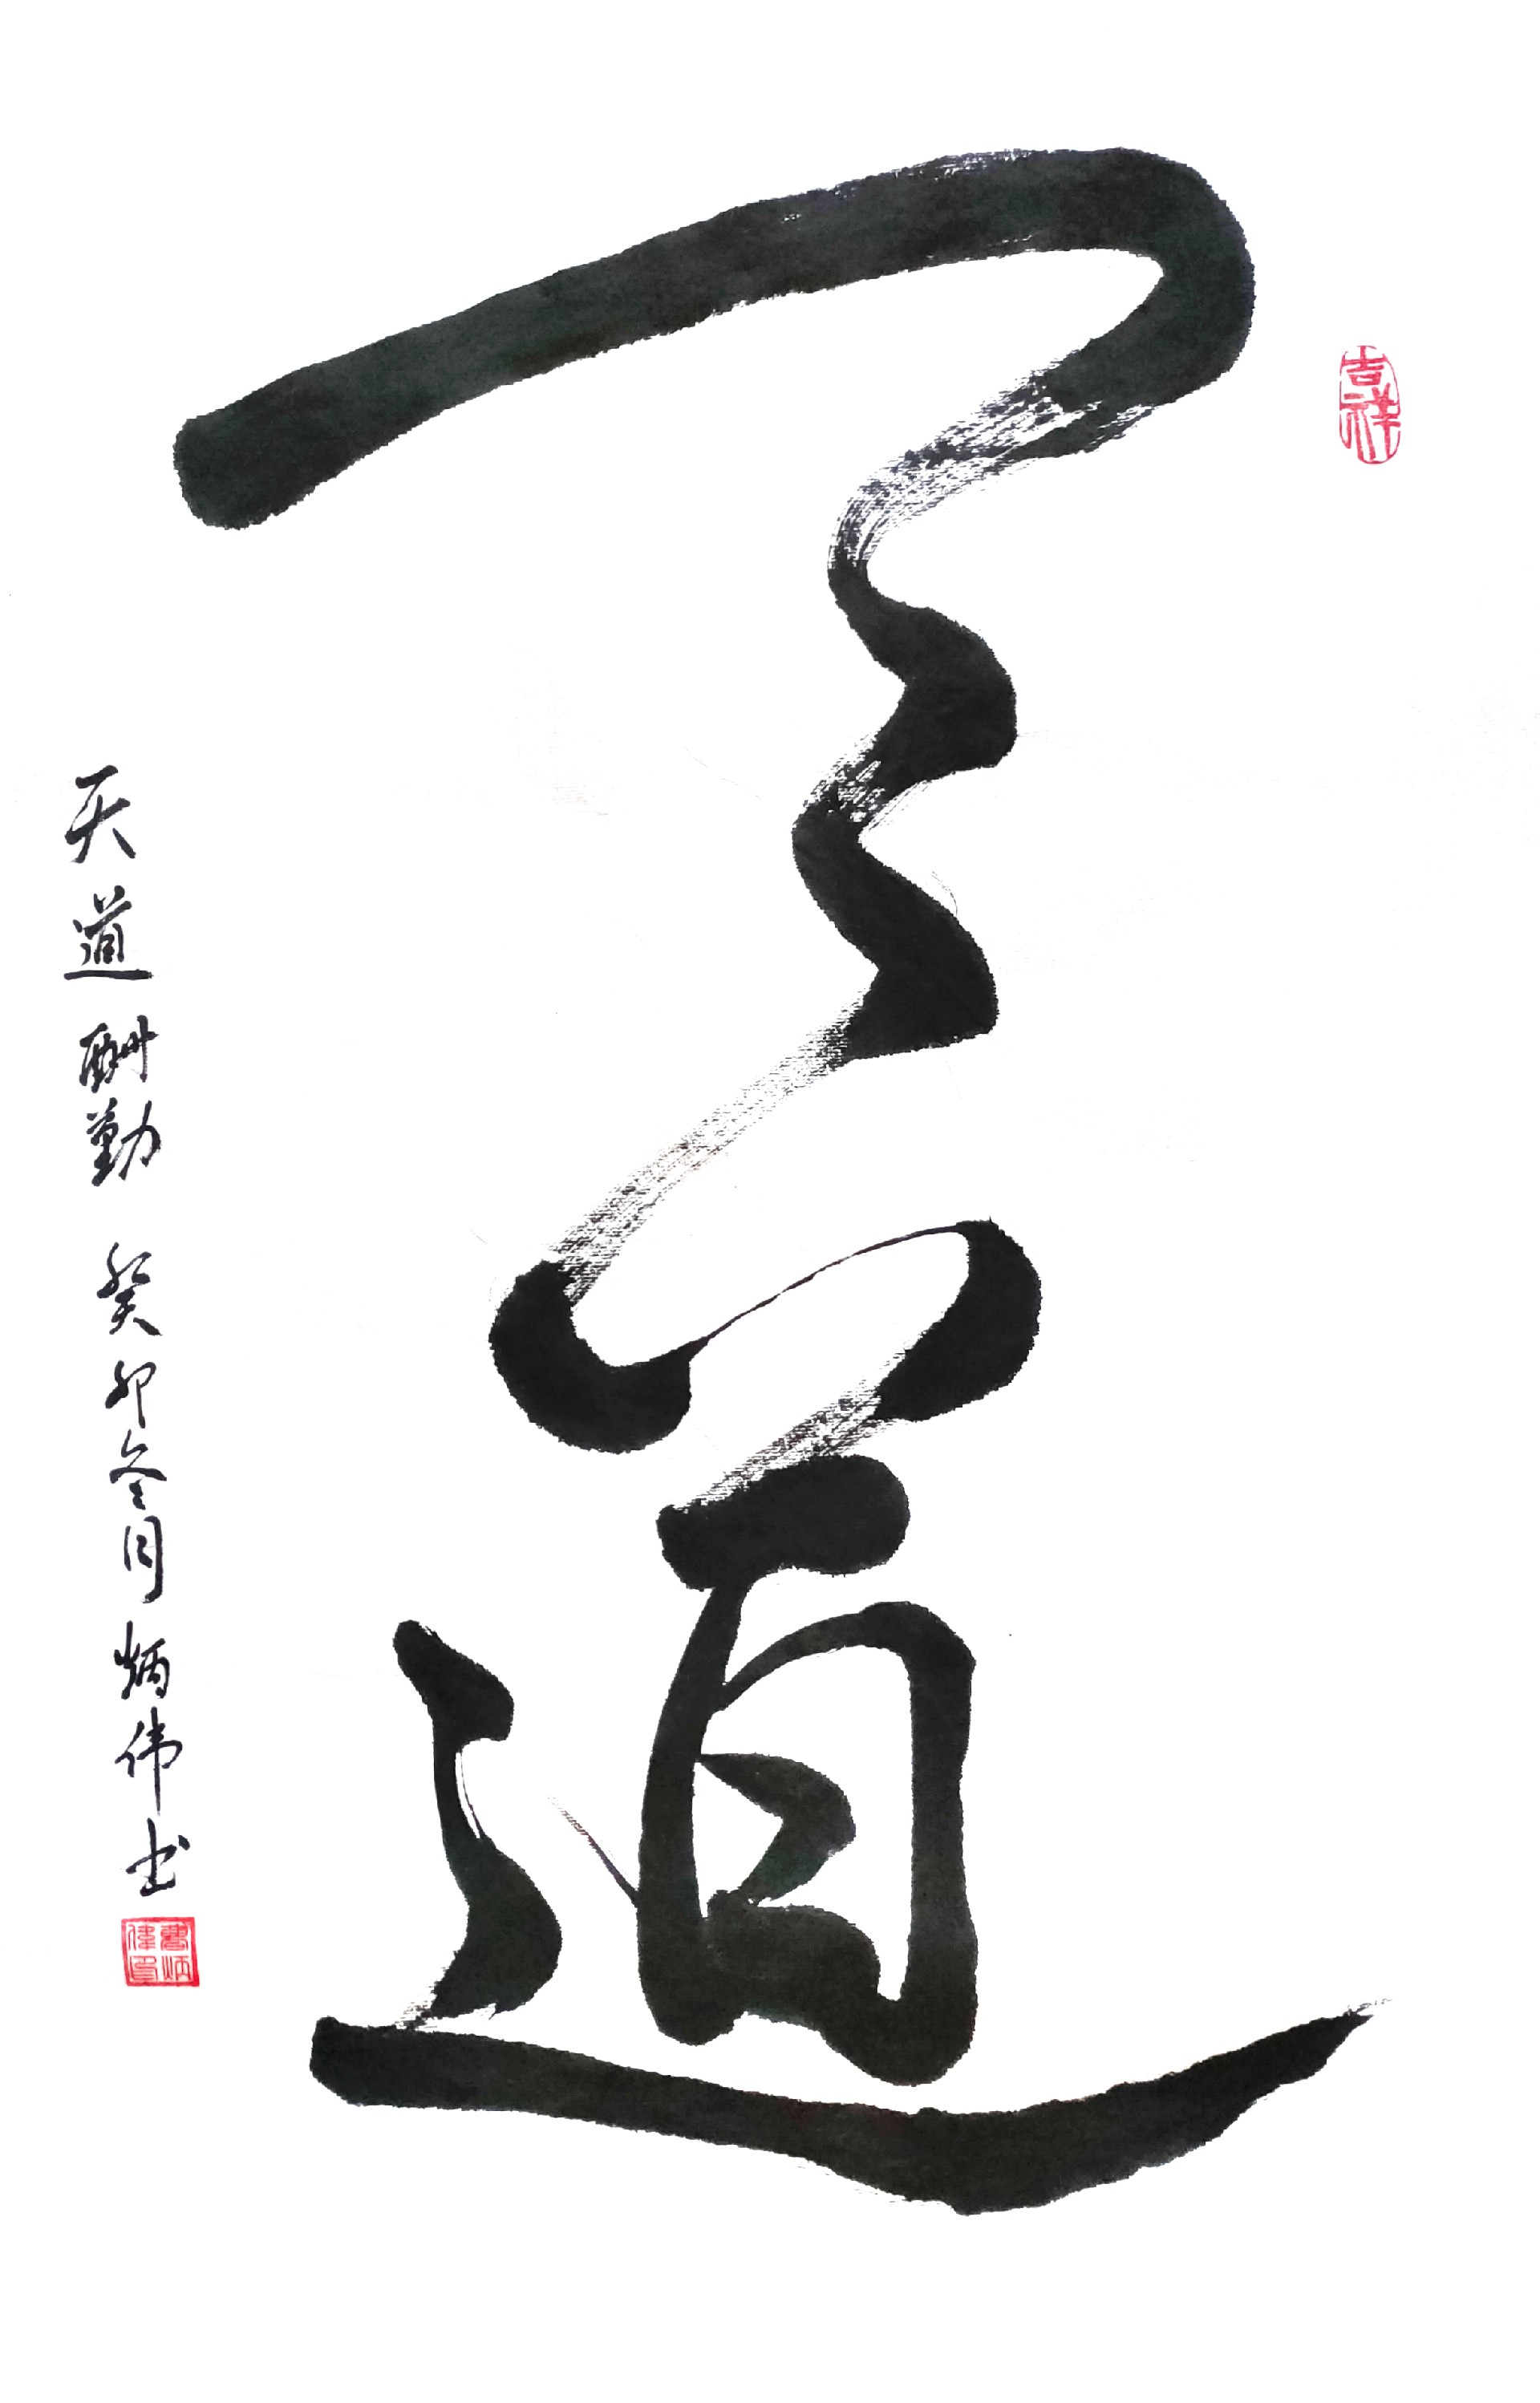 吉祥
天道
天道酬勤 癸卯冬月 炳伟书
炳偉印